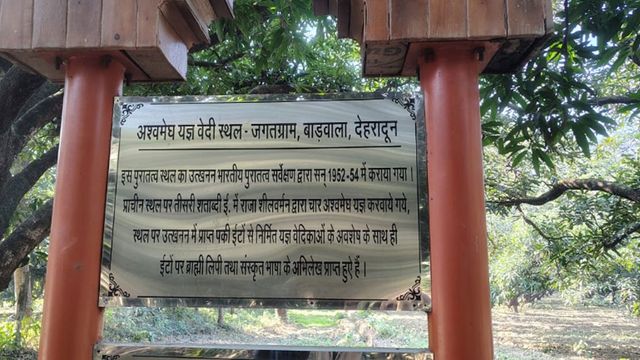 अश्वमेघ यज्ञ वेदी स्थल - जगतग्राम, बाड़वाला, देहरादून
इस पुरातत्व स्थल का उत्खनन भारतीय पुरातत्व सर्वेक्षण द्वारा सन् 1952-54 में कराया गया ।
प्राचीन स्थल पर तीसरी शताब्दी ई. में राजा शीलवर्मन द्वारा चार अश्वमेघ यज्ञ करवाये गये,
स्थल पर उत्खनन में प्राप्त पकी ईंटों से निर्मित यज्ञ वेदिकाओं के अवशेष के साथ ही
ईंटों पर ब्राह्मी लिपी तथा संस्कृत भाषा के अभिलेख प्राप्त हुऐ हैं ।